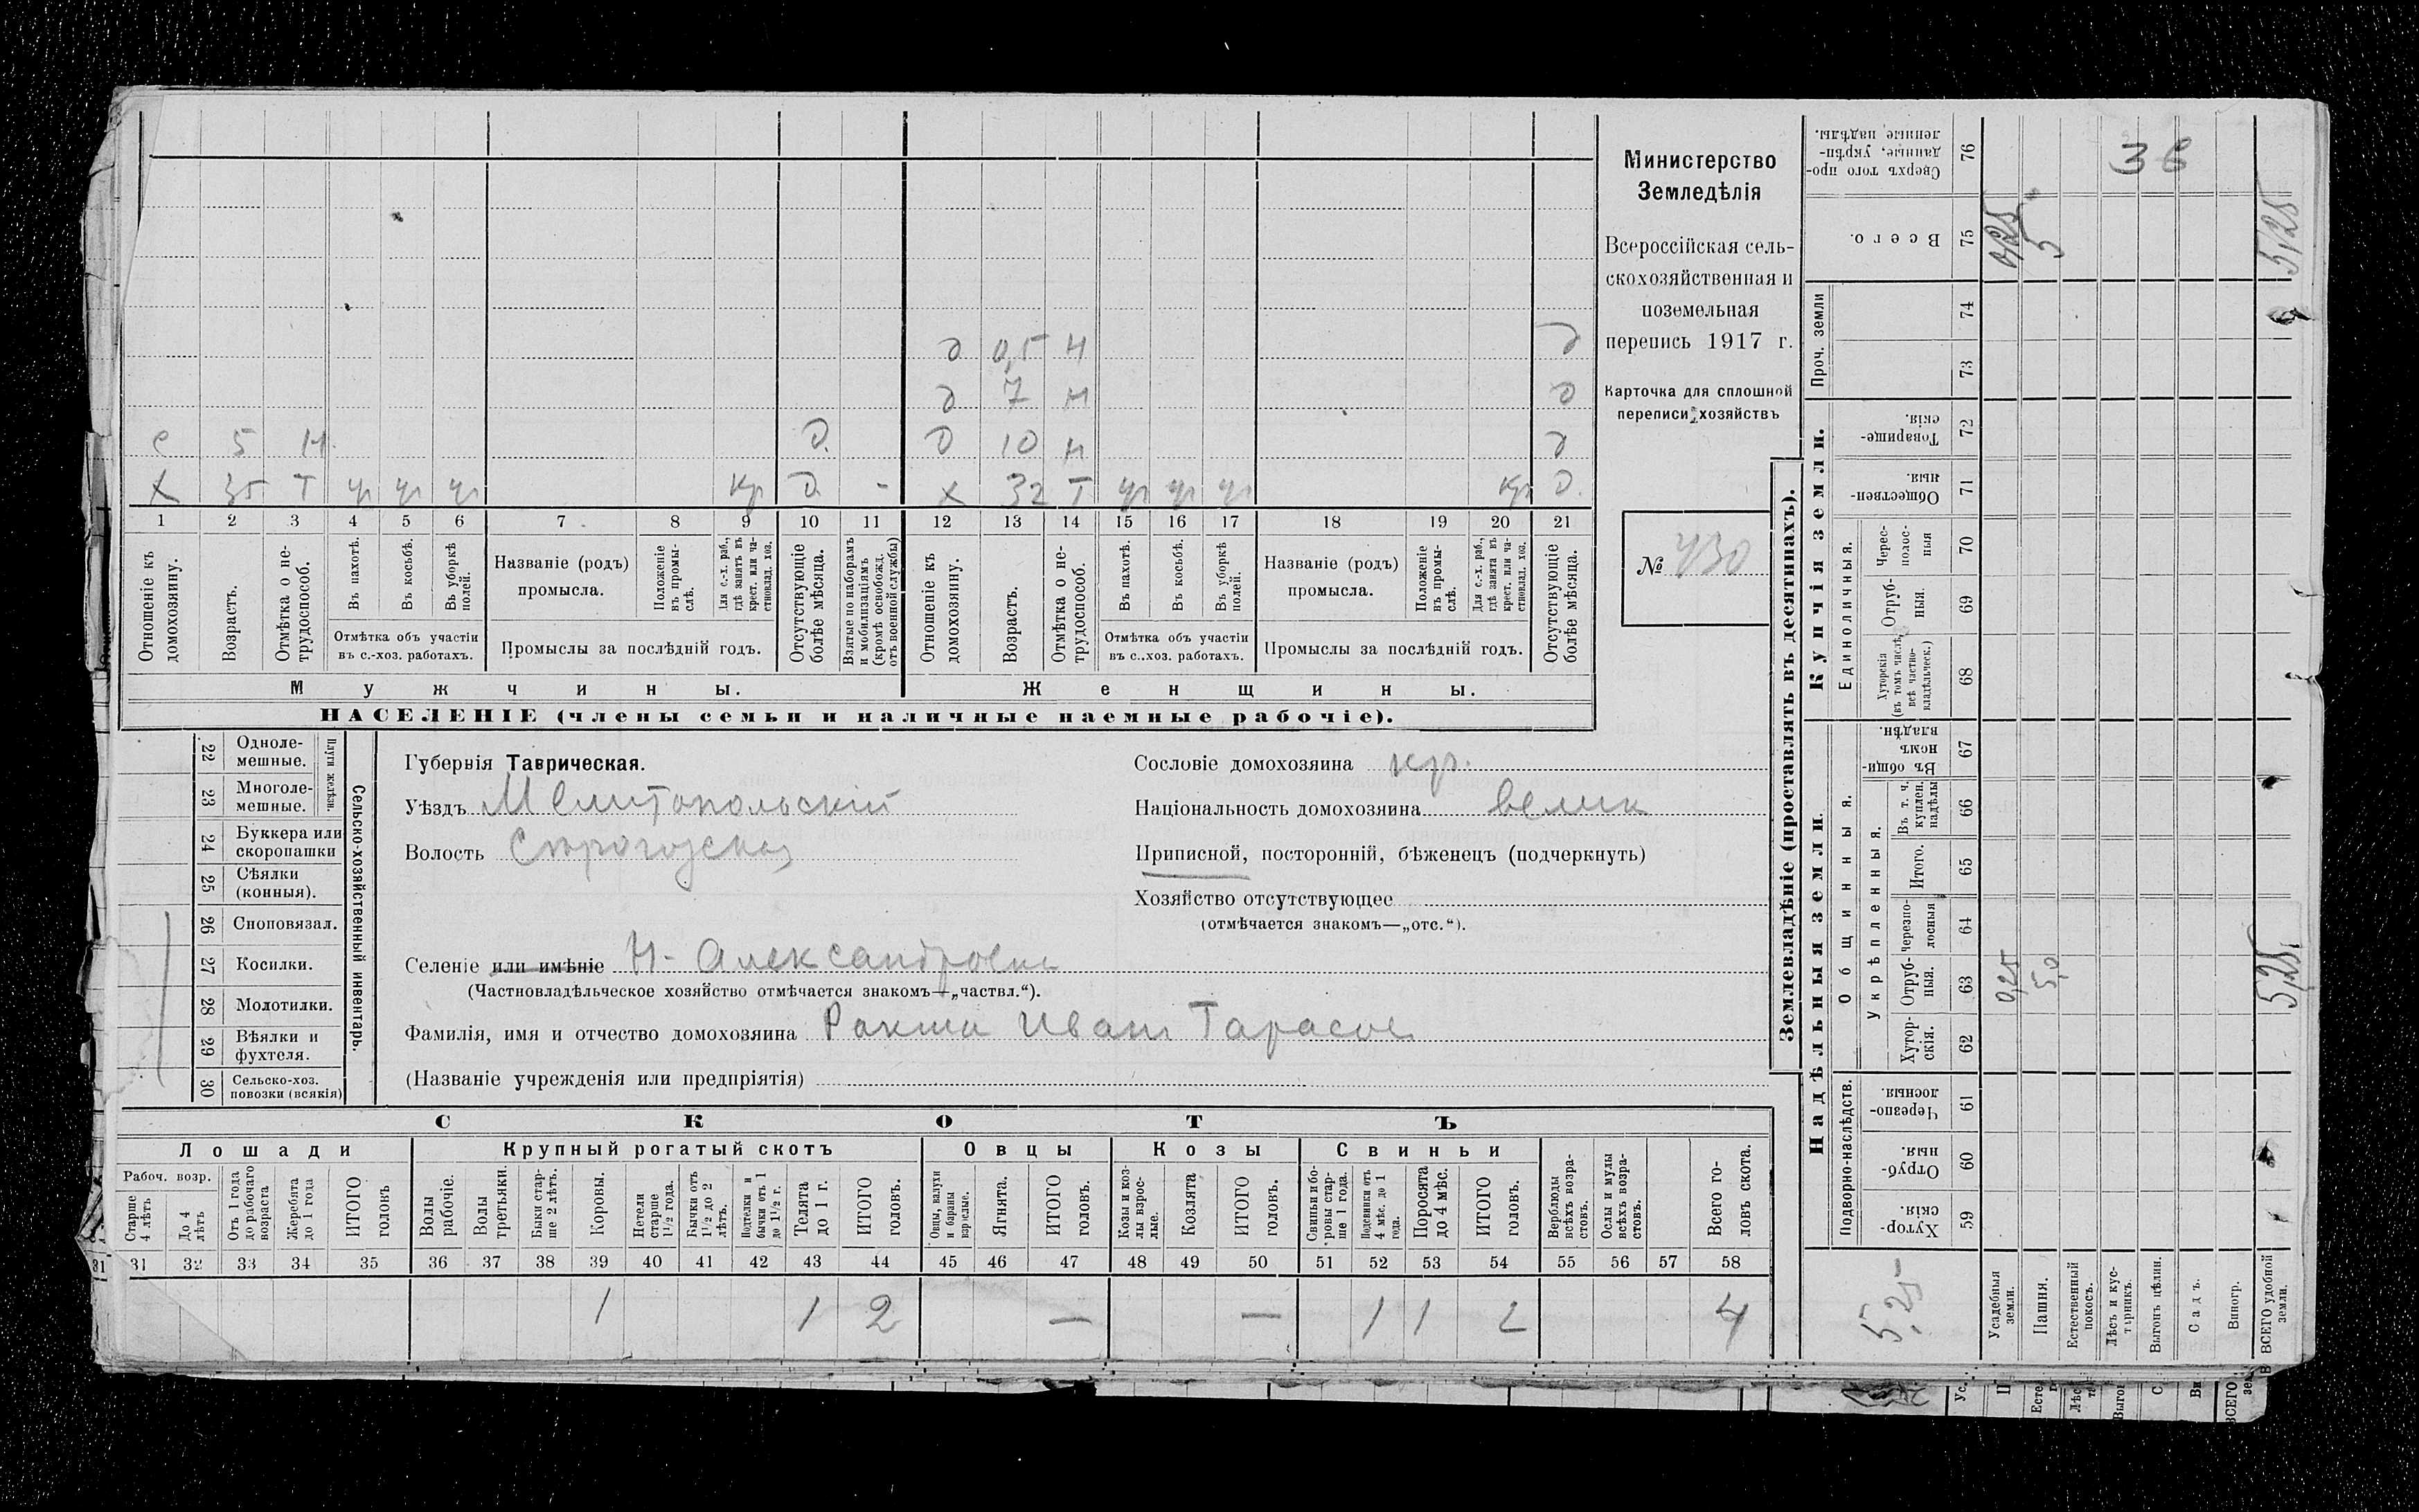 д 0,5 н д
д 7 н д
с 5 н д. д 10 н д
х 35 т уч уч уч кр д. - х 32 т уч уч уч кр д.
1 2 3 4 5 6 7 8 9 10 11 12 13 14 15 16 17 18 19 20 21
Отношеніе къ домохозяину.
Возрастъ.
Отмѣтка о не-
трудоспособ.
Въ пахотѣ.
Въ косьбѣ.
Въ уборкѣ
полей.
Отмѣтка объ участіи
въ с.-хоз. работахъ.
Названіе (родъ)
промысла.
Положеніе
въ промы-
слѣ.
Для с.-х. раб.,
гдѣ занятъ въ
крест. или ча-
стновлад. хоз.
Промыслы за послѣдній годъ.
Отсутствующіе
болѣе мѣсяца.
Взятые по наборамъ
и мобилизаціямъ
(кромѣ освобожд.
отъ военной службы)
Отношеніе къ
домохозяину.
Возрастъ.
Отмѣтка о не-
трудоспособ.
Въ пахотѣ.
Въ косьбѣ.
Въ уборкѣ
полей.
Отмѣтка объ участіи
въ с..хоз. работахъ.
Названіе (родъ)
промысла.
Положеніе
въ промы-
слѣ.
Для с.-х. раб.,
гдѣ занята въ
крест. или ча-
стновлад. хоз.
Промыслы за послѣдній годъ.
Отсутствующіе
болѣе мѣсяца.
Мужчины.
Женщины.
НАСЕЛЕНІЕ (члены семьи и наличные наемные рабочіе).
Министерство
Земледѣлія
Всероссійская сель-
скохозяйственная и
поземельная
перепись 1917 г.
Карточка для сплошной
переписи хозяйствъ
№ 430
22 Одноле-
мешные.
23 Многоле-
мешные.
Плуги желѣзн.
24 Буккера или
скоропашки
25 Сѣялки
(конныя).
26 Сноповязал.
27 Косилки.
28 Молотилки.
29 Вѣялки и
фухтеля.
30 Сельско-хоз.
повозки (всякія)
Сельско-хозяйственный инвентарь.
Губернія Таврическая.
Уѣздъ Мелитопольскій
Волость Сѣрогозская
Селеніе или имѣніе Н-Александровка
(Частновладѣльческое хозяйство отмѣчается знакомъ—„частвл.“).
Фамилія, имя и отчество домохозяина Ракша Иван Тарасов
(Названіе учрежденія или предпріятія)
Сословіе домохозяина кр.
Національность домохозяина велик
Приписной, посторонній, бѣженецъ (подчеркнуть)
Хозяйство отсутствующее
(отмѣчается знакомъ—„отс.“).
СКОТЪ
Лошади Крупный рогатый скотъ Овцы Козы Свиньи
Рабоч. возр.
Старше
4 лѣтъ
До 4
лѣтъ
Отъ 1 года
до рабочаго
возраста
Жеребята
до 1 года
ИТОГО
головъ
Волы
рабочіе.
Волы
третьяки.
Быки стар-
ше 2 лѣтъ.
Коровы.
Нетели
старше
1½ года.
Бычки отъ
1½ до 2
лѣтъ.
Подтелки и
бычки отъ 1
до 1½ г.
Телята
до 1 г.
ИТОГО
головъ.
Овцы, валухи
и бараны
взрослые.
Ягнята.
ИТОГО
головъ.
Козы и коз-
лы взрос-
лые.
Козлята
ИТОГО
головъ.
Свиньи и бо-
ровы стар-
ше 1 года.
Подсвинки отъ
4 мѣс. до 1
года.
Поросята
до 4 мѣс.
ИТОГО
головъ.
Верблюды
всѣхъ возра-
стовъ.
Ослы и мулы
всѣхъ возра-
стовъ.
Всего го-
ловъ скота.
31 32 33 34 35 36 37 38 39 40 41 42 43 44 45 46 47 48 49 50 51 52 53 54 55 56 57 58
1 1 2 — — 1 1 2 4
Землевладѣніе (проставлять въ десятинахъ).
Надѣльныя земли.
Купчія земли.
Проч. земли
Подворно-наслѣдств.
Общинныя.
Укрѣпленныя.
Единоличныя.
Хутор-
скія. 59
Отруб-
ныя. 60
Черезпо-
лосныя 61
Хутор-
скія. 62
Отруб-
ныя. 63
Черезпо-
лосныя 64
Итого. 65
Въ т. ч.
куплен.
надѣлы 66
Въ общин-
номъ
владѣн. 67
Хуторскія
(въ томъ числѣ
всѣ частно-
владѣльческ.) 68
Отруб-
ныя. 69
Черес-
полос-
ныя 70
Обществен-
ныя. 71
Товарище-
скія. 72
73
74
Всего. 75
Сверхъ того про-
данные, укрѣп-
ленные надѣлы. 76
5,25
Усадебныя
земли. 0,25 0,25
Пашня. 5,0 5
Естественный
покосъ.
Лѣсъ и кус-
тарникъ.
Выгонъ цѣлин.
Садъ.
Виногр.
ВСЕГО удобной
земли. 5,25 5,25